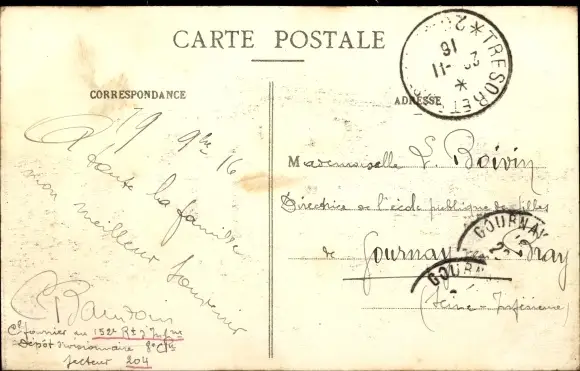 CARTE POSTALE
CORRESPONDANCE
19 9bre 16
A toute la famille
mon meilleur souvenir
Cal fourrier au 152e Rt d'Infrie
Dépôt divisionnaire 8e Cie
Secteur 204
ADRESSE
Mademoiselle L. Boivin
Directrice de l'école publique de filles
de Gournay Bray
(Seine-Inférieure)
TRESOR ET
11-16
GOURNAY
GOURNAY